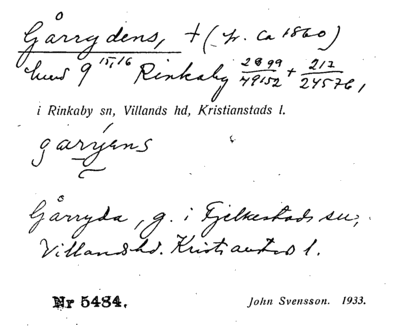 Gårrydens, † (fr. ca 1860)
hus 9 15,16 Rinkaby 2899/49152 + 217/24576,
i Rinkaby sn, Villands hd, Kristianstads l.
garýens
Gårryda, g. i Fjelkestads sn,
Villands hd. Kristianstads l.
Nr 5484. John Svensson. 1933.